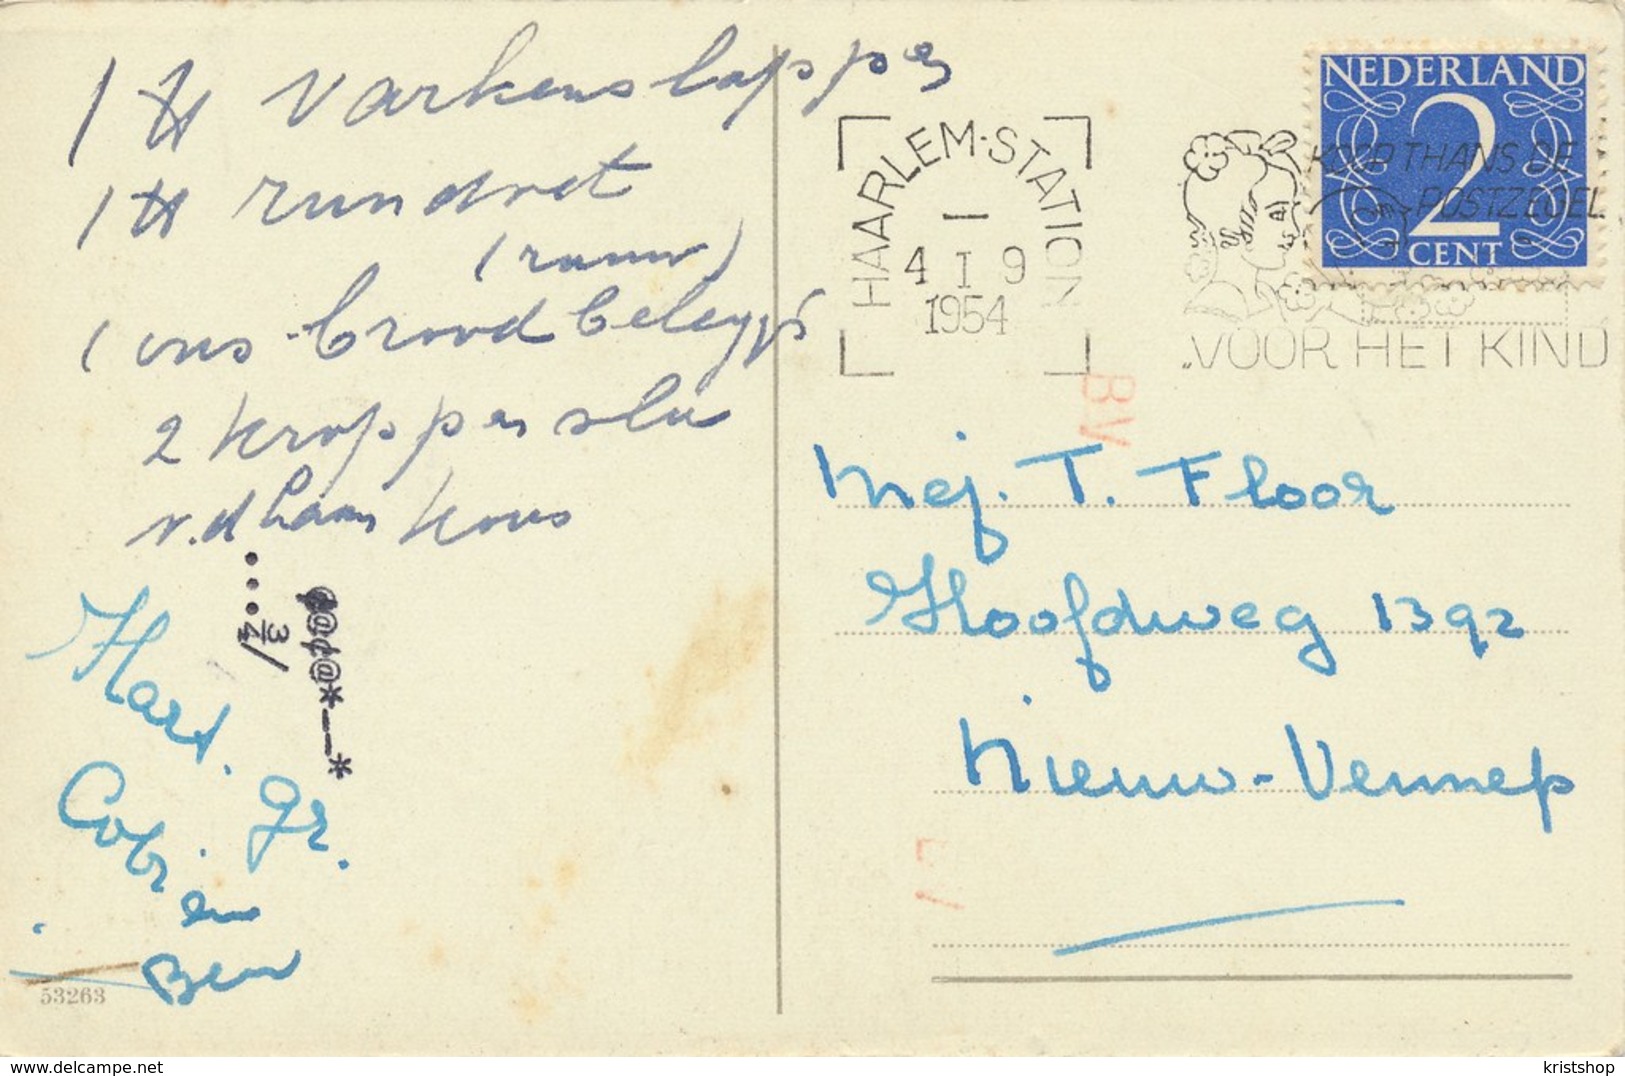 1 ℔ varkenslappen
1 ℔ rundvet
(rauw)
1 ons broodbelegg
2 kroppen sla
v.d.
3/4/
@¢@*——*
Hart. gr.
Cobi
en
Ben
53263
HAARLEM-STATION
4 I 9
1954
KOOP THANS DE
POSTZEGEL
„VOOR HET KIND
NEDERLAND
2
CENT
BV
Mej. T. Floor
Hoofdweg 1392
Nieuw-Vennep
delcampe.net
kristshop